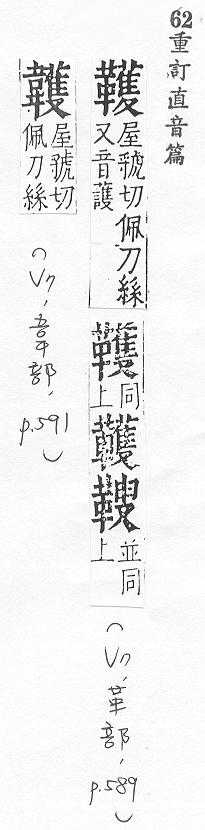 62重訂直音篇
韄
屋虢切佩刀絲
又音護
同
上
並同
上
(V7, 革部, p.589)
屋虢切
佩刀絲
(V7, 韋部, p.591)